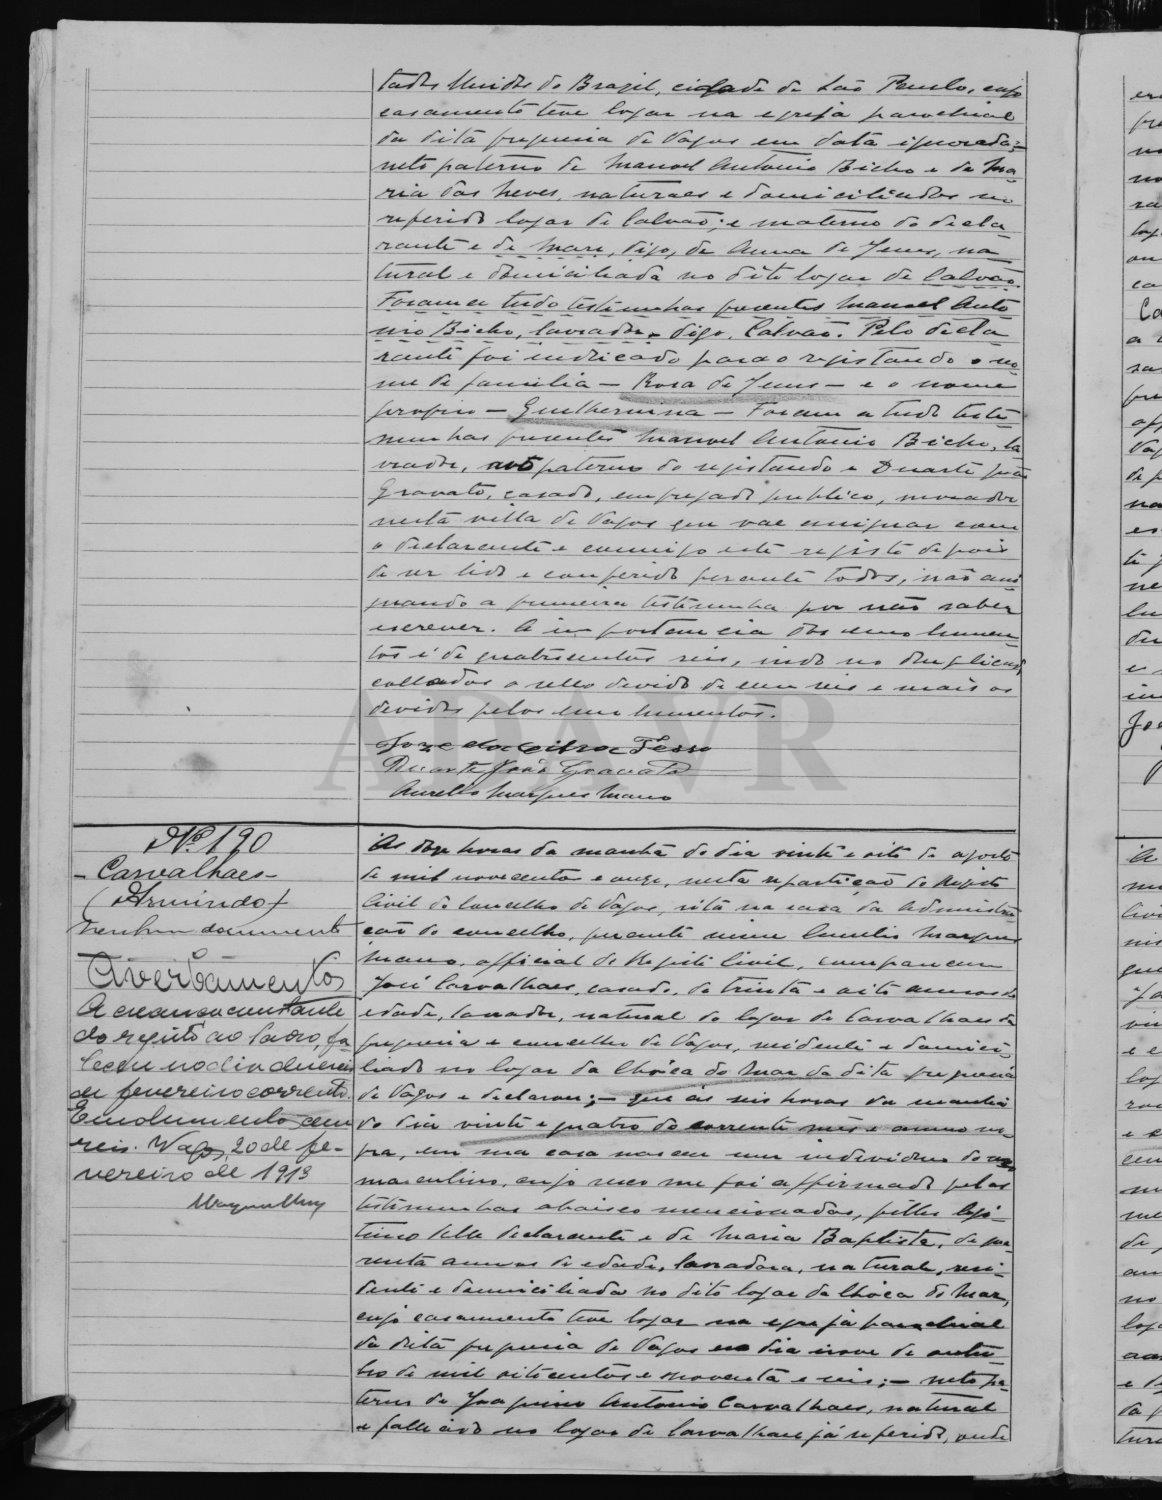 tados Unidos do Brazil, cidade de São Paulo, cujo
casamento teve logar na egreja parochial
da dita freguesia de Vagos em data ignorada;
neto paterno de Manoel Antonio Bicho e de Ma
ria das Neves, naturaes e domiciliados no
referido logar de Calvão; e materno do decla
rante e de Mari, digo, de Anna de Jesus, na
tural e domiciliada no dito logar de Calvão.
Foram a tudo testimunhas presentes Manoel Anto
nio Bicho, lavrador, digo, Calvão. Pelo decla
rante foi indicado para o registando o no
me de familia — Rosa de Jesus — e o nome
proprio — Guilhermina — Foram a tudo teste
munhas presentes Manoel Antonio Bicho, la
vrador, avô paterno do registando e Duarte João
Gravato, casado, empregado publico, morador
nesta villa de Vagos que vae assignar com
o declarante e commigo este registo depois
de ser lido e conferido perante todos, não assi
gnando a primeira testimunha por não saber
escrever. A importancia dos emolumen
tos é de quatrocentos reis, indo no duplicado
collados o sello devido de cem reis e mais os
devidos pelos emolumentos.
José da Silva
Duarte João Gravato
Aurelio Marques Mano
Nº 190
- Carvalhaes -
(Armindo)
Nenhum documento
Averbamentos
A creança constante
do registo ao lado, fa-
leceu no dia dezeseis
de fevereiro corrente.
Emolumento cem
reis. Vagos, 20 de fe-
vereiro de 1913
As doze horas da manhã do dia vinte e oito de agosto
de mil novecentos e onze, nesta repartição do Registo
Civil do Concelho de Vagos, sita na casa da Administra
ção do concelho, perante mim Aurelio Marques
Mano, official do Registo Civil, compareceu
José Carvalhaes, casado, de trinta e oito annos de
edade, lavrador, natural do logar de Carvalhaes da
freguesia e concelho de Vagos, residente e domici
liado no logar da Chóca do Mar da dita freguesia
de Vagos e declarou; — que ás seis horas da manhã
do dia vinte e quatro do corrente mês e anno su-
pra, em sua casa nasceu um individuo do sexo
masculino, cujo sexo me foi affirmado pelas
testimunhas abaixo mencionadas, filho legi-
timo delle declarante e de Maria Baptista, de qua-
renta annos de edade, lavradora, natural, resi-
dente e domiciliada no dito logar da Chóca do Mar,
cujo casamento teve logar na egreja parochial
da dita freguesia de Vagos no dia nove de outu-
bro de mil oitocentos e noventa e seis; — neto pa-
terno de Joaquim Antonio Carvalhaes, natural
e fallecido no logar de Carvalhaes já referido, onde
ADAVR